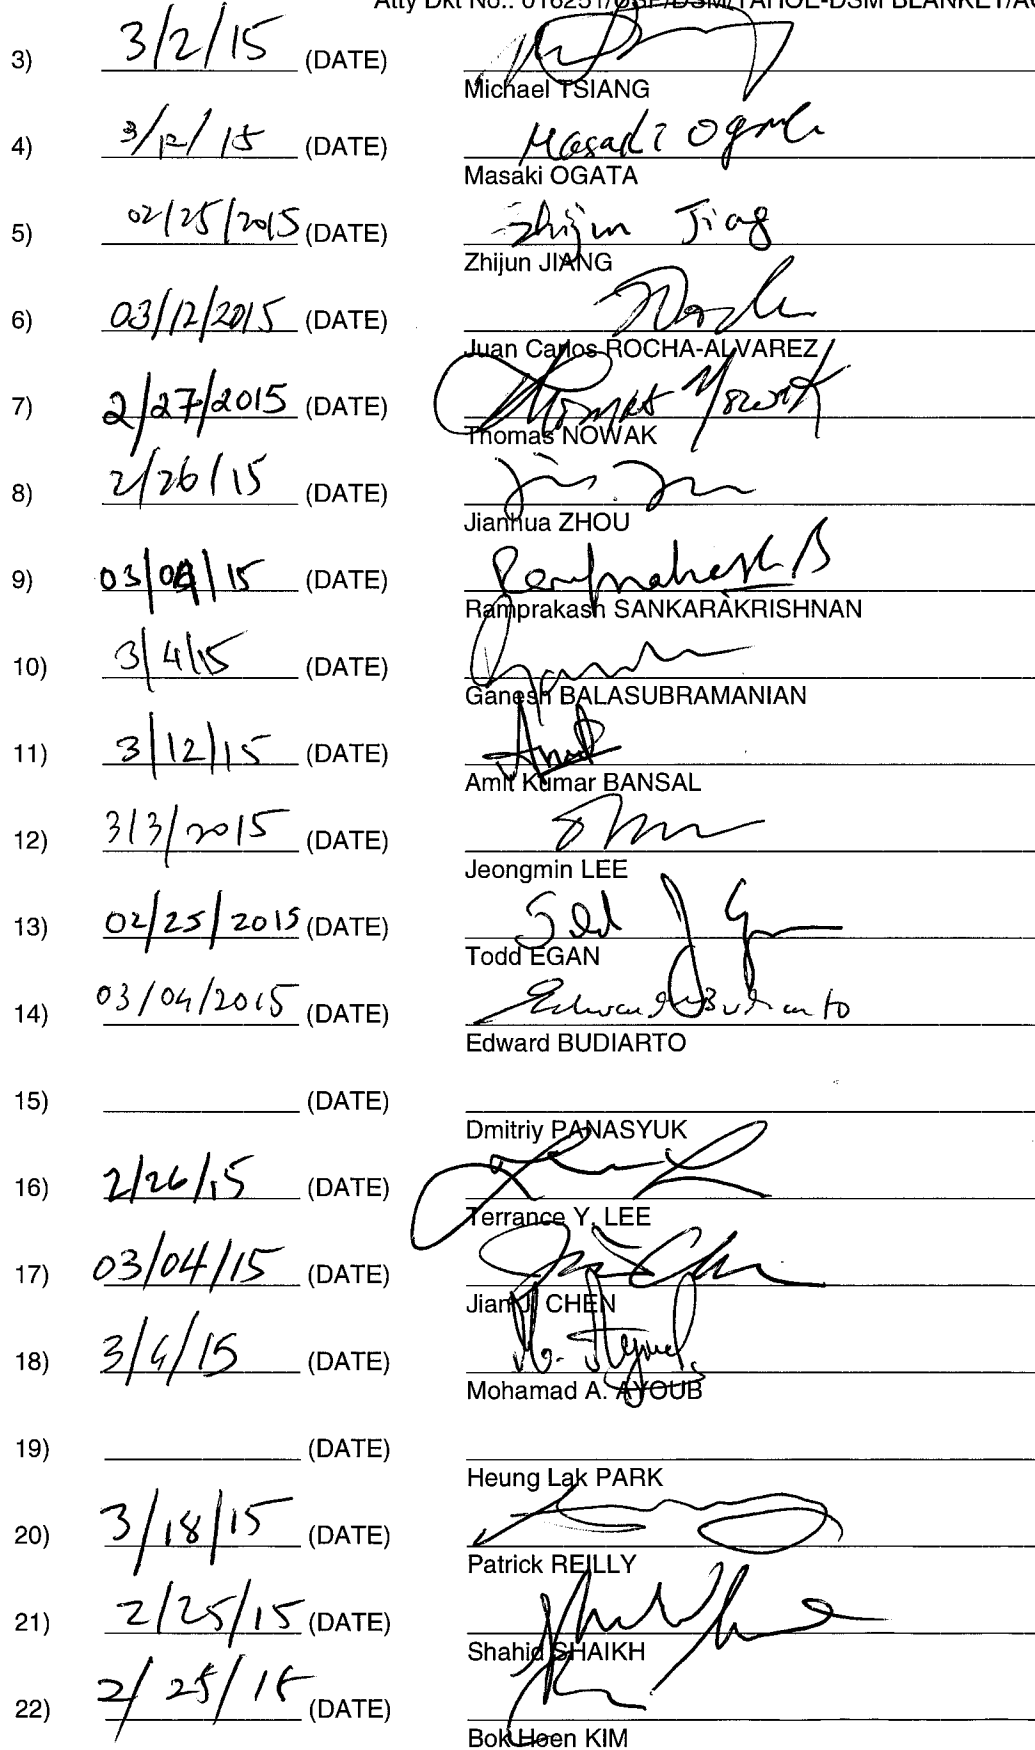 Atty Dkt No.: 016251/USP/DSM/TAHOE-DSM BLANKET/AG
3) 3/2/15 (DATE)
Michael TSIANG
4) 3/12/15 (DATE) Masaki Ogata
Masaki OGATA
5) 02/25/2015 (DATE) Zhijun Jiang
Zhijun JIANG
6) 03/12/2015 (DATE)
Juan Carlos ROCHA-ALVAREZ
7) 2/27/2015 (DATE) Thomas Nowak
Thomas NOWAK
8) 2/26/15 (DATE)
Jianhua ZHOU
9) 03/04/15 (DATE) Ramprakash S
Ramprakash SANKARAKRISHNAN
10) 3/4/15 (DATE)
Ganesh BALASUBRAMANIAN
11) 3/12/15 (DATE) Amit
Amit Kumar BANSAL
12) 3/3/2015 (DATE)
Jeongmin LEE
13) 02/25/2015 (DATE)
Todd EGAN
14) 03/04/2015 (DATE) Edward Budiarto
Edward BUDIARTO
15) (DATE)
Dmitriy PANASYUK
16) 2/26/15 (DATE)
Terrance Y. LEE
17) 03/04/15 (DATE)
Jian J. CHEN
18) 3/4/15 (DATE)
Mohamad A. AYOUB
19) (DATE)
Heung Lak PARK
20) 3/18/15 (DATE)
Patrick REILLY
21) 2/25/15 (DATE)
Shahid SHAIKH
22) 2/25/15 (DATE)
Bok Hoen KIM